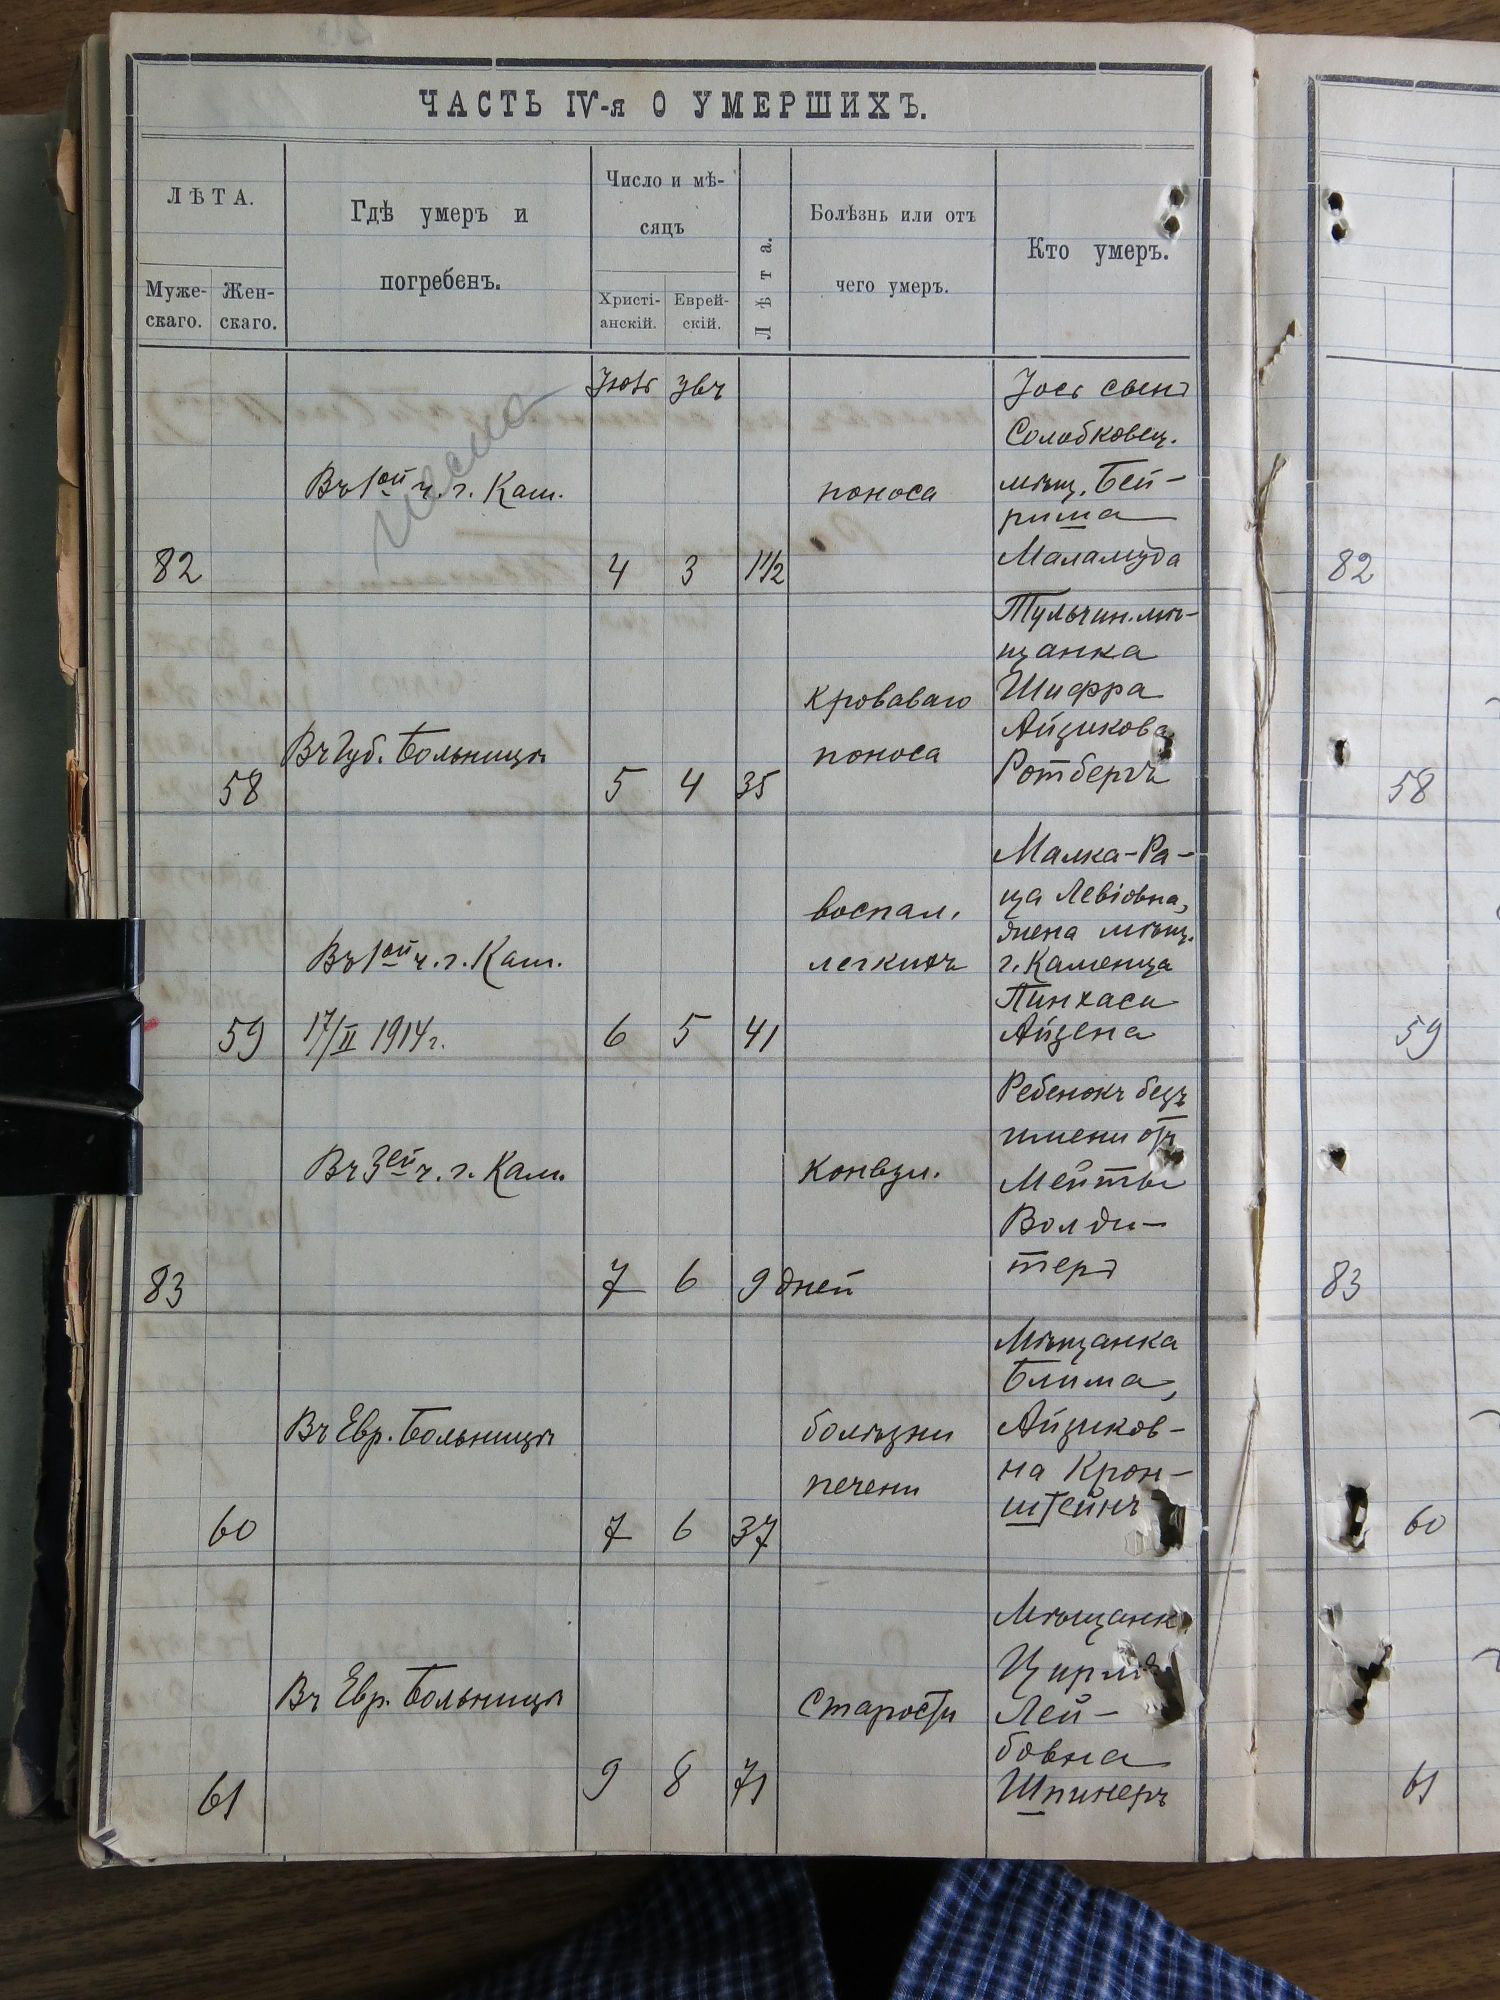 ЧАСТЬ IV-я О УМЕРШИХЪ.
ЛѢТА.
Муже-
скаго.
Жен-
скаго.
Гдѣ умеръ и
погребенъ.
Число и мѣ-
сяцъ
Христі-
анскій.
Еврей-
скій.
Лѣта.
Болѣзнь или отъ
чего умеръ.
Кто умеръ.
82
Въ 1ой ч. г. Кам.
4
3
1 1/2
поноса
Іось сынъ
Солобковец.
мѣщ. Бей-
рима
Маламуда
82
58
Въ Губ. Больницѣ
5
4
35
кроваваго
поноса
Тульчин. мѣ-
щанка
Шифра
Айзикова
Ротбергъ
58
59
Въ 1ой ч. г. Кам.
17/II 1914 г.
6
5
41
воспал.
легкихъ
Малка-Ра-
ца Левіовна,
жена мѣщ.
г. Каменца
Пинхаса
Айзена
59
83
Въ 3ей ч. г. Кам.
7
6
9 дней
конвул.
Ребенокъ безъ
имени отъ
Мейты
Волди-
теръ
83
60
Въ Евр. Больницѣ
7
6
37
болѣзни
печени
Мѣщанка
Блима,
Айзиков-
на Крон-
штейнъ
60
61
Въ Евр. Больницѣ
9
8
71
Старости
Лей-
бовна
Шпинеръ
61